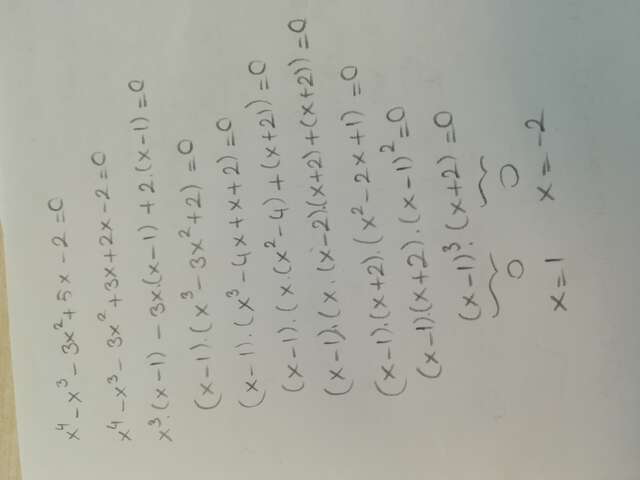 x⁴ - x³ - 3x² + 5x - 2 = 0
x⁴ - x³ - 3x² + 3x + 2x - 2 = 0
x³.(x-1) - 3x.(x-1) + 2.(x-1) = 0
(x-1).(x³ - 3x² + 2) = 0
(x-1).(x³ - 4x + x + 2) = 0
(x-1).(x.(x² - 4) + (x+2)) = 0
(x-1).(x.(x-2).(x+2) + (x+2)) = 0
(x-1).(x+2).(x² - 2x + 1) = 0
(x-1).(x+2).(x-1)² = 0
(x-1)³.(x+2) = 0
0 0
x=1 x=-2